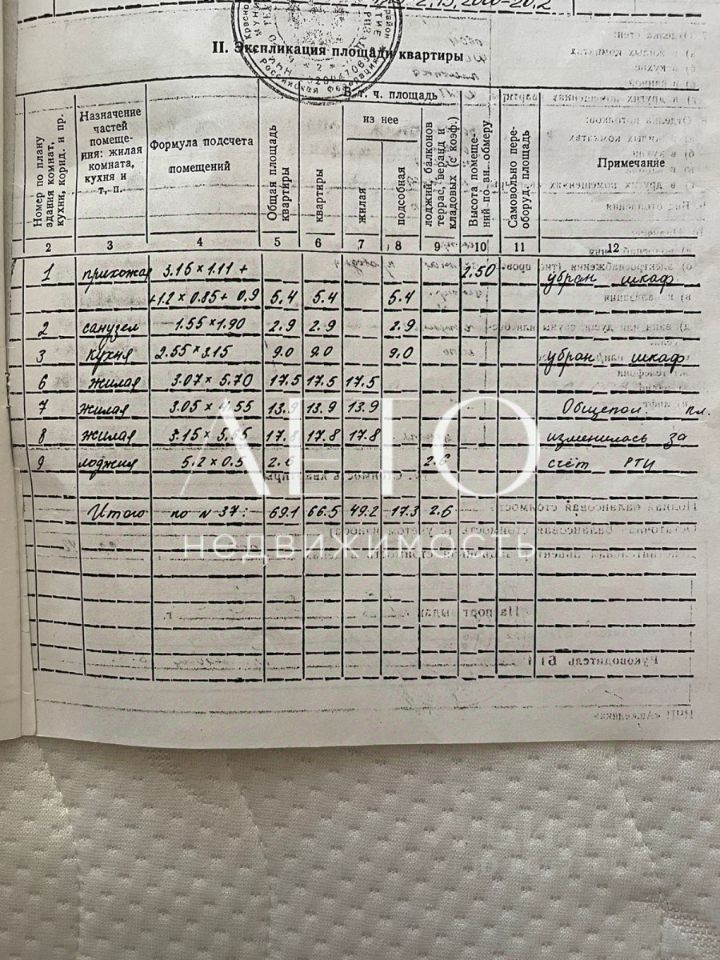 II. Экспликация площади квартиры
Номер по плану здания комнат, кухни, корид. и пр.
Назначение частей помещения: жилая комната, кухня и т. п.
Формула подсчета помещений
Общая площадь квартиры
В т. ч. площадь
квартиры
из нее
жилая
подсобная
лоджий, балконов террас, веранд и кладовых (с коэф.)
Высота помещений по вн. обмеру
Самовольно переоборуд. площадь
Примечание
2 3 4 5 6 7 8 9 10 11 12
1 прихожая 3.15 × 1.11 + 2.50 убран шкаф
+1.2 × 0.85 + 0.9 5.4 5.4 5.4
2 санузел 1.55 × 1.90 2.9 2.9 2.9
3 кухня 2.55 × 3.15 9.0 9.0 9.0 убран шкаф
6 жилая 3.07 × 5.70 17.5 17.5 17.5
7 жилая 3.05 × 4.55 13.9 13.9 13.9 Общепол. пл.
8 жилая 3.15 × 17.8 17.8 17.8 изменилась за
9 лоджия 5.2 × 0.5 2.6 2.6 счёт РТИ
Итого по N 37: 69.1 66.5 49.2 17.3 2.6
АПГО
недвижимость